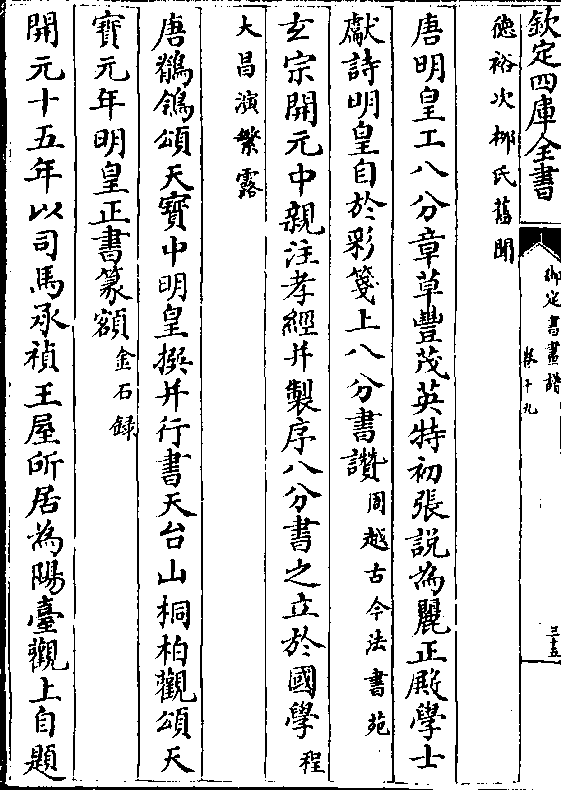 欽定四庫全書
御定書畫譜
卷十九
三十五
德裕次柳氏舊聞
唐明皇工八分章草豐茂英特初張說為麗正殿學士
獻詩明皇自於彩箋上八分書讚周越古今法書苑
玄宗開元中親注孝經并製序八分書之立於國學程
大昌演繁露
唐鶺鴒頌天寶中明皇撰并行書天台山桐柏觀頌天
寶元年明皇正書篆額金石録
開元十五年以司馬承禎王屋所居為陽臺觀上自題